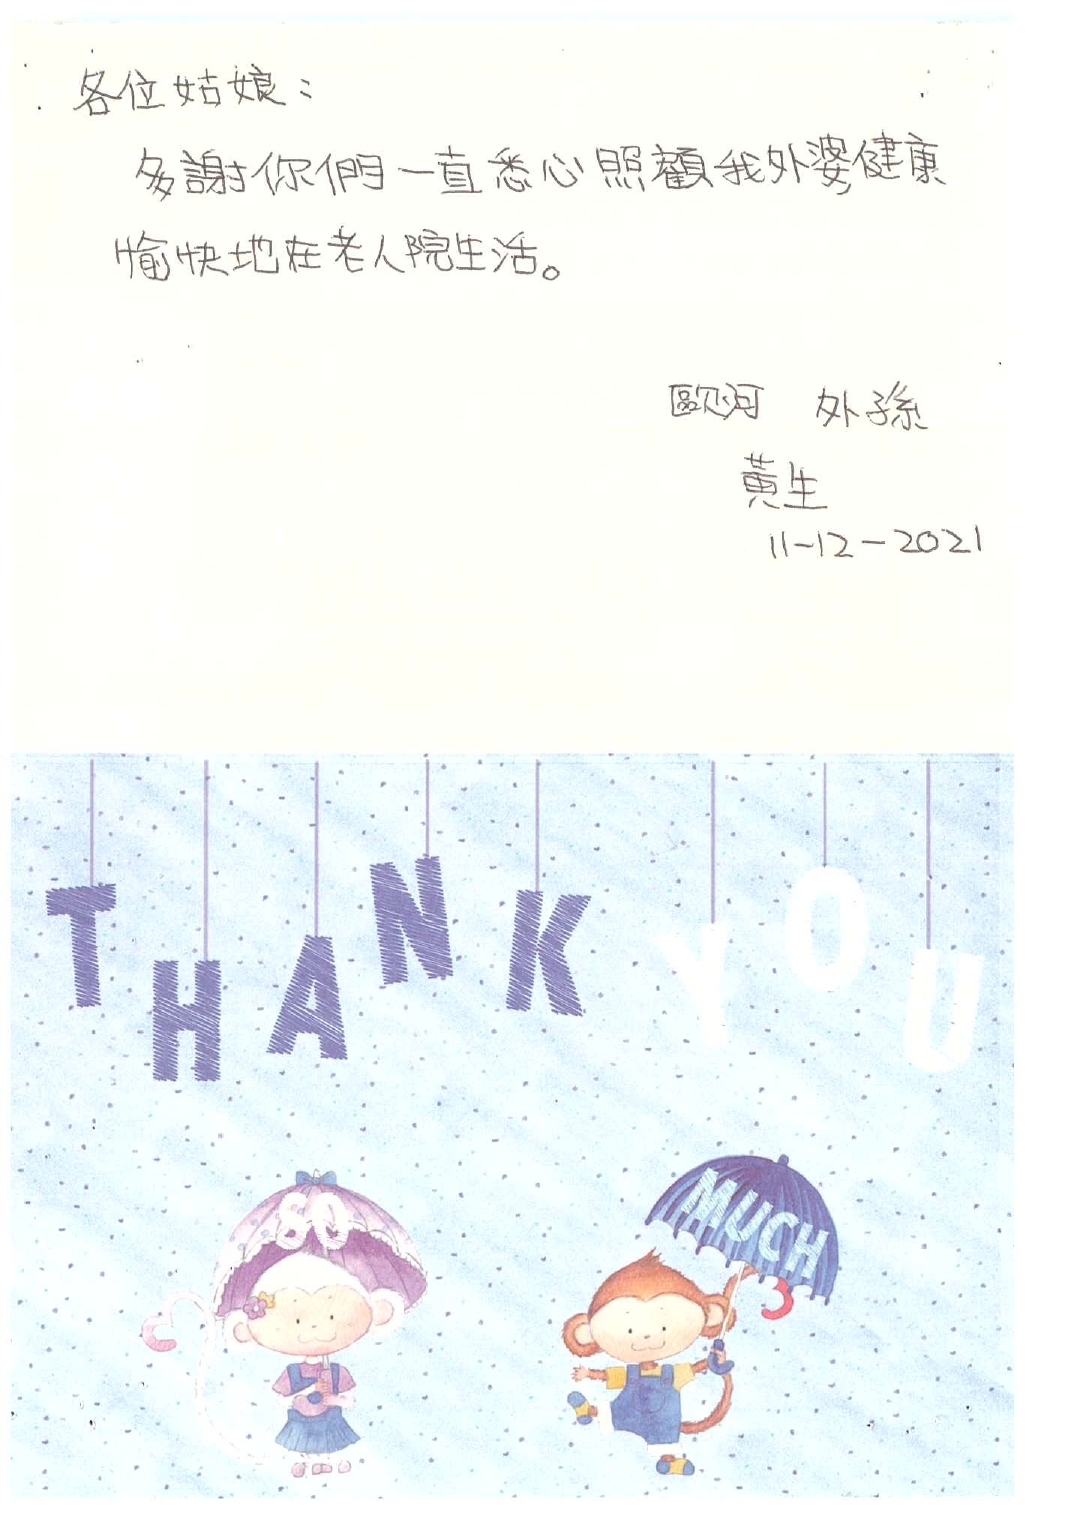 各位姑娘：
多謝你們一直悉心照顧我外婆健康
愉快地在老人院生活。
歐河 外孫
黃生
11-12-2021
THANK YOU
SO MUCH